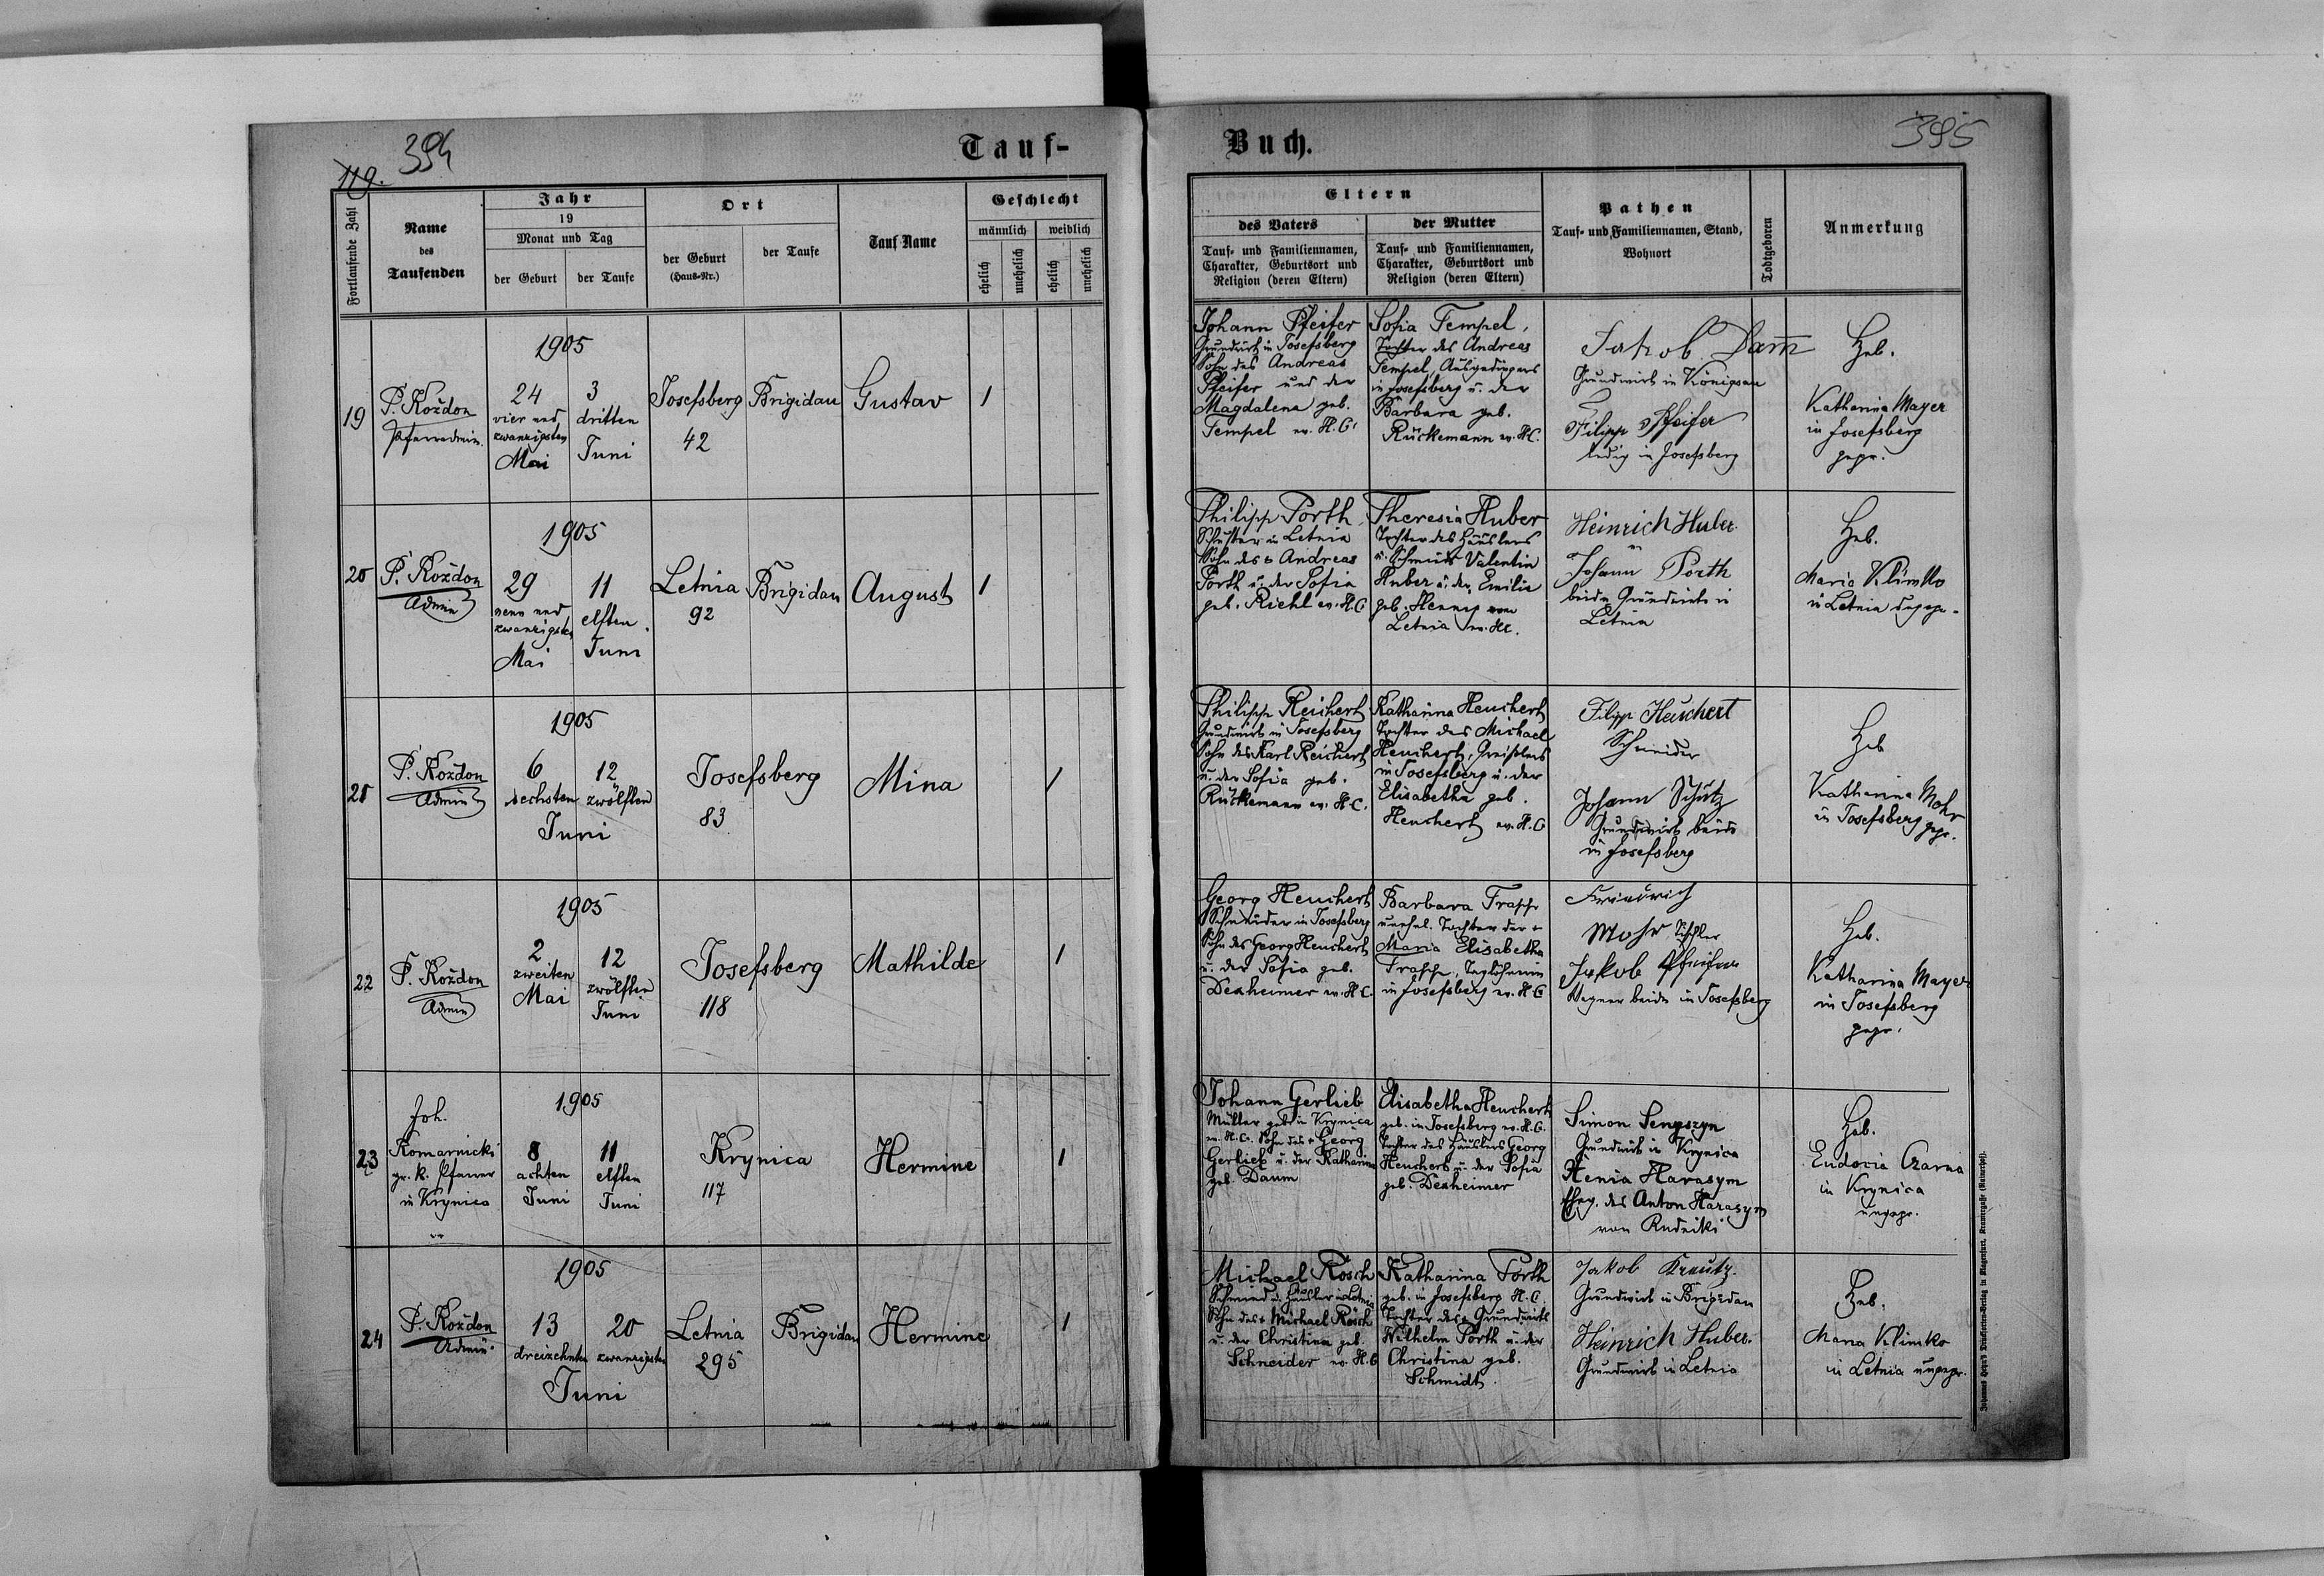 119.
394
Tauf-
Fortlaufende Zahl
Name
des
Taufenden
Jahr
19
Monat und Tag
der Geburt
der Taufe
Ort
der Geburt
(Haus-Nr.)
der Taufe
Tauf-Name
Geschlecht
männlich
weiblich
ehelich
unehelich
ehelich
unehelich
19
P. Koždon
Pfarradmin.
1905
24
vier und
zwanzigsten
Mai
3
dritten
Juni
Josefsberg
42
Brigidau
Gustav
1
20
P. Koždon
Admin
1905
29
neun und
zwanzigsten
Mai
11
elften
Juni
Letnia
92
Brigidau
August
1
21
P. Koždon
Admin
1905
6
sechsten
12
zwölften
Juni
Josefsberg
83
Mina
1
22
P. Koždon
Admin
1905
2
zweiten
Mai
12
zwölften
Juni
Josefsberg
118
Mathilde
1
23
Joh.
Komarnicki
gr. k. Pfarrer
in Krynica
1905
8
achten
Juni
11
elften
Juni
Krynica
117
Hermine
1
24
P. Koždon
Admin.
1905
13
dreizehnten
20
zwanzigsten
Juni
Letnia
295
Brigidau
Hermine
1
395
Buch.
Eltern
des Vaters
Tauf- und Familiennamen,
Charakter, Geburtsort und
Religion (deren Eltern)
der Mutter
Tauf- und Familiennamen,
Charakter, Geburtsort und
Religion (deren Eltern)
Pathen
Tauf- und Familiennamen, Stand,
Wohnort
Todtgeboren
Anmerkung
Johann Pfeifer
Grundwirt in Josefsberg
Sohn des Andreas
Pfeifer und der
Magdalena geb.
Tempel ev. H. C.
Sofia Tempel,
Tochter des Andreas
Tempel, Ausgedingers
in Josefsberg u. der
Barbara geb.
Rückemann ev. H.C.
Jakob Dam̅
Grundwirt in Königsau
Filipp Pfeifer
ledig in Josefsberg
Heb.
Katharina Mayer
in Josefsberg
gepr.
Philipp Porth,
Schuster in Letnia
Sohn des + Andreas
Porth u. der Sofia
geb. Riehl ev. H.C
Theresia Huber
Tochter des Häuslers
u. Schmids Valentin
Huber u. der Emilie
geb. Henny von
Letnia ev. HC.
Heinrich Huber
u
Johann Porth
beide Grundwirte in
Letnia
Heb.
Maria Klimko
in Letnia
Philipp Reichert
Grundwirt in Josefsberg
Sohn des Karl Reichert
u. der Sofia geb.
Rückemann ev. H.C.
Katharina Heuchert
Tochter des Michael
Heuchert, Greißlers
in Josefsberg u. der
Elisabetha geb.
Heuchert ev. H.C
Filipp Heuchert
Schneider
Johann Schütz
Grundwirt beide
in Josefsberg
Heb
Katharina Mohr
in Josefsberg gepr.
Georg Heuchert
Schneider in Josefsberg
Sohn des Georg Heuchert
u. der Sofia geb.
Dexheimer ev. H.C.
Barbara Trapp
unehel. Tochter der +
Maria Elisabetha
Trapp, Taglöhnerin
in Josefsberg ev. H C
Friedrich
Mohr Tischler
Jakob Pfeifer
Wagner beide in Josefsberg
Heb.
Katharina Mayer
in Josefsberg
gepr.
Johann Gerlieb
Müller geb. in Krynica
ev. H.C. Sohn des + Georg
Gerlieb u. der Katharina
geb. Daum
Elisabetha Heuchert
geb. in Josefsberg ev. H.C.
Tochter des Häuslers Georg
Heuchert u. der Sofia
geb. Dexheimer
Simon Senyszyn
Grundwirt in Krynica
Henia Harasym
Eheg. des Anton Harasym
von Rudniki
Heb.
Eudocia Czarna
in Krynica
ungepr.
Michael Rösch
Schmied u. Häusler in Letnia
Sohn des + Michael Rösch
u. der Christina geb.
Schneider ev. H.C
Katharina Porth
geb. in Josefsberg H.C.
Tochter des + Grundwirts
Wilhelm Porth u. der
Christina geb.
Schmidt.
Jakob Kreutz.
Grundwirt in Brigidau
Heinrich Huber.
Grundwirt in Letnia
Heb.
Maria Klimko
in Letnia ungepr.